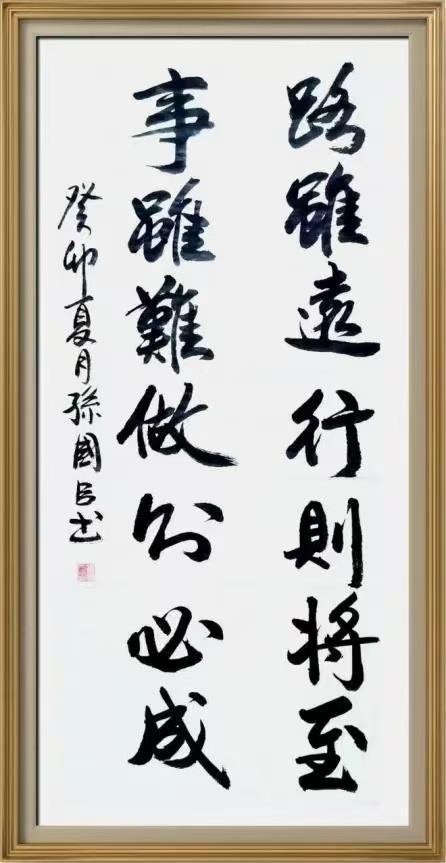 路雖遠行則将至
事雖難做则必成
癸卯夏月孫國臣书